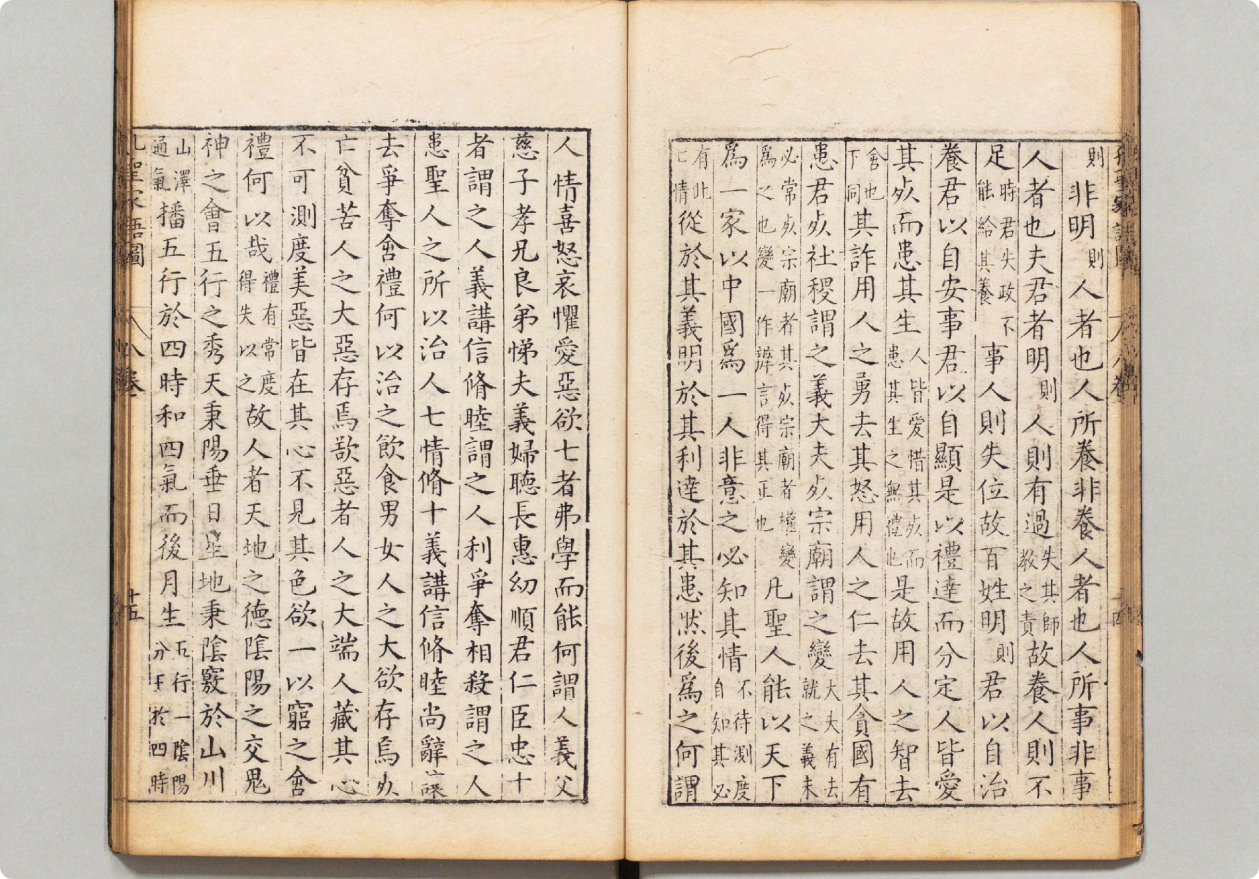 則非明則人者也人所養非養人者也人所事非事
人者也夫君者明則人則有過失其師教之責故養人則不
足時君失政不能給其養事人則失位故百姓明則君以自治
養君以自安事君以自顯是以禮達而分定人皆愛
其死而患其生人皆愛惜其死而患其生之無禮也是故用人之智去
其詐用人之勇去其怒用人之仁去其貪國有
患君死社稷謂之義大夫死宗廟謂之變大夫有去就之義未
必常死宗廟者其死宗廟者權變為之也變一作辨言得其正也凡聖人能以天下
為一家以中國為一人非意之必知其情不待測度自知其必
有此情從於其義明於其利達於其患然後為之何謂
人情喜怒哀懼愛惡欲七者弗學而能何謂人義父
慈子孝兄良弟悌夫義婦聽長惠幼順君仁臣忠十
者謂之人義講信脩睦謂之人利爭奪相殺謂之人
患聖人之所以治人七情脩十義講信脩睦尚辭讓
去爭奪舍禮何以治之飲食男女人之大欲存焉死
亡貧苦人之大惡存焉欲惡者人之大端人藏其心
不可測度美惡皆在其心不見其色欲一以窮之舍
禮何以哉禮有常度得失以之故人者天地之德陰陽之交鬼
神之會五行之秀天秉陽垂日星地秉陰竅於山川
山澤通氣播五行於四時和四氣而後月生五行一陰陽分于於四時
家語圖 八卷 十五